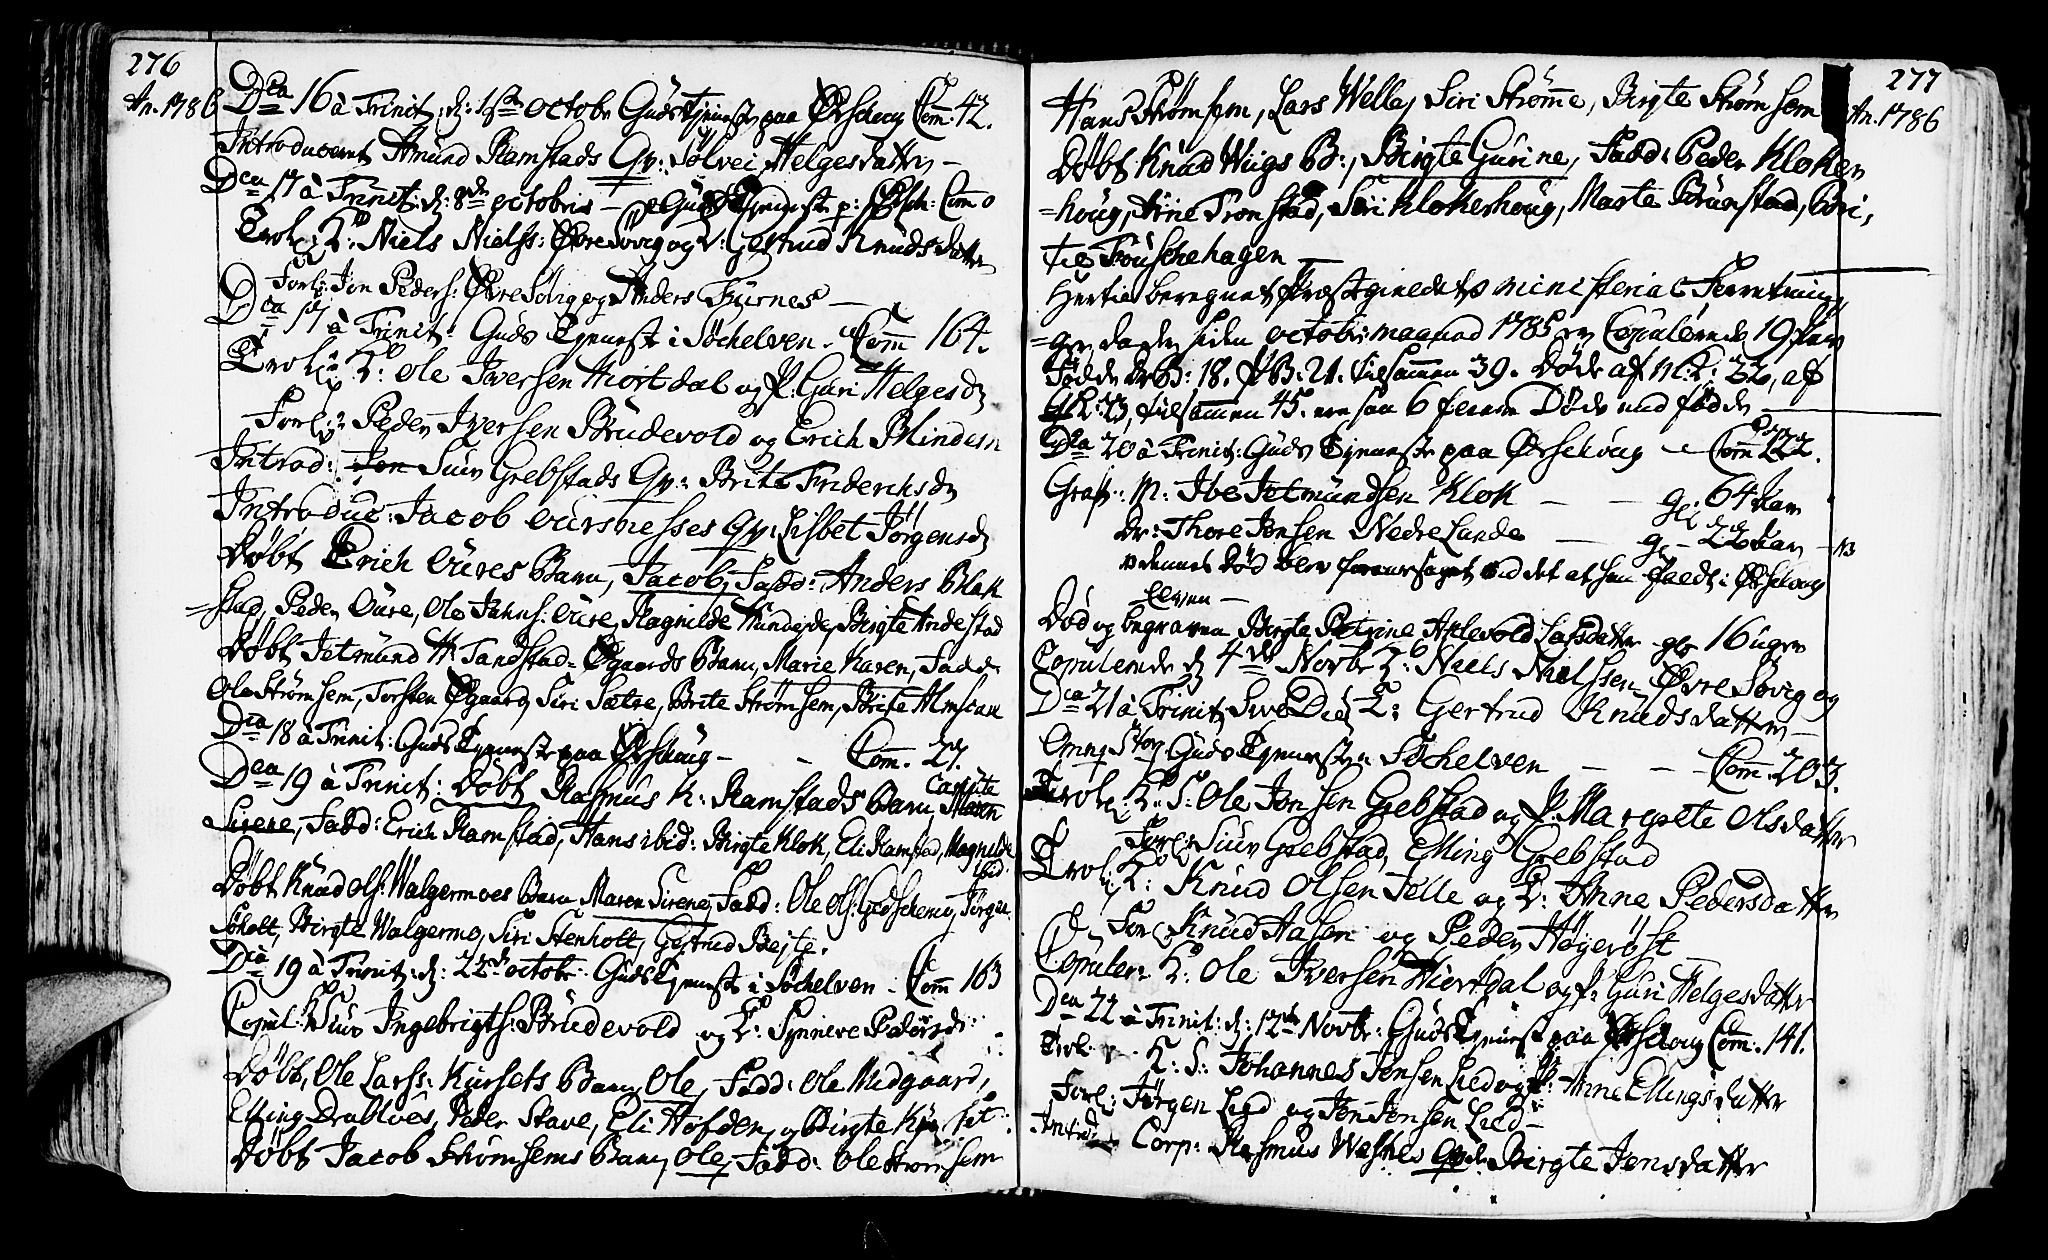 276
An. 1786
Dca 16 à Trinit: d: 1ste octobr Guds Tjeneste paa Ørschoug Com. 42.
Introduceret Amund Ramstads Qv: Sølvei Helgesdatter
Dca 17 à Trinit: d: 8de octobris Guds Tjeneste p: Com 0
Trol: K: Niels Nielss: Øvre Søvig og P: Gertrud Knudsdatter
Forl: Jon Peders: Øvre Søvig og Anders Furnes
Dca 17 à Trinit: Guds Tjeneste i Søchelven Com 164.
Trol: K: Ole Iversen Hiortdal og P. Guri Helgesd
Forl: Peder Iversen Brudevold og Erich Blindem
Introd: Jon Siur Grebstads Qv: Brite Frideriksd
Introduc: Jacob Oursnesses Qv: Lisbet Jørgensd
Døbt Erich Oures Barn, Jacob, Fadd: Anders Blak
=stad, Peder Oure, Ole Jahns: Oure, Ragnilde Hundejde, Birgte Andestad
Døbt Jetmund Tandstad=Øgaards Barn, Marie Karen, Fadd:
Ole Strømsem, Torsten Øgaard, Siri Sætre, Brite Strømsem, Brite Almeaas
Dca 18 à Trinit: Guds Tjeneste paa Ørschoug - - Com. 27.
Dca 19 à Trinit: Døbt Rasmus K: Ramstads Barn, Maren
Sirene, Fadd: Erich Ramstad, Hans ibid: Birgte Klok, Eli Ramstad, Magnilde
ibid:
Døbt Knud Ols: Walgermoes Barn Maren Sirene, Fadd: Ole Ols: Gedscheneg, Jørgen
Søholt, Birgte Walgermo, Siri Stenholt, Gertrud Bejte.
Dca 19 à Trinit: d: 22de octobr: Guds Tjeneste i Søchelven - Com 163
Copul: Siur Ingebrigts: Brudevold og P: Synneve Pedersd:
Døbt, Ole Larss: Kursets Barn, Ole, Fadd: Ole Midgaard,
Elling Drabløes, Peder Stave, Eli Hofden, og Birgte Kurset:
Døbt Jacob Strømsems Barn, Ole, Fadd: Ole Strømsem
277
An. 1786
Hans Strømsem, Lars Welle, Siri Strømme, Birgte Strømsem
Døbt Knud Wiigs B:, Birgte Gurine, Fadd: Peder Kloker
=houg, Arne Tronstad, Siri Klokerhoug, Marte Brunstad, Bri,
te Touschehagen
Hertil beregnet Præstegieldets ministerial Forretning
=ger, da der siden octobr: maaned 1785 er Copulerede 19 par
Fødde DrB: 18. PB: 21. tilsammen 39. Døde af M.K: 22, af
QK: 23, tilsammen 45. ere saa 6 fleere Døde end fødde
Dca 20 à Trinit: Guds Tjeneste paa Ørschoug Com 222.
Grafs: M: Ibe Jetmundsen Klok gl: 64 Aar
Dr: Thore Jensen Nedre Lande gl - 22 Aar NB
dennes Død blev foraarsaget ved det at han faldt i Ørschoug
Elven
Død og begraven Birgte Petrine Aklevold Larsdatter gl 16 uger
Copulerede d 4de Novbr K: Niels Nielssen Øvre Søvig og
Dca 21 à Trinit P: Gertrud Knudsdatter
Guds Tjeneste i Søchelven - - Com. 203.
Trol: K. S: Ole Jensen Grebstad og P. Margrete Olsdatter
Forl: Siur Grebstad, Elling Grebstad
Trol: K: Knud Olsen Jelle og P: Anne Pedersdatter
Forl: Knud Aasen og Peder Høgerøst
Copuler: K: Ole Iversen Hiortdal og P: Guri Helgesdatter
Dca 22 à Trinit: d: 12te Novbr: Guds Tjeneste paa Ørschoug Com. 141.
Trol: K: S: Johannes Jensen Lied og P: Anne Ellingsdatter
Forl: Jørgen Lied og Jon Jensen Lied
Introd: Corp: Rasmus Westres Qv: Birgte Jensdatter